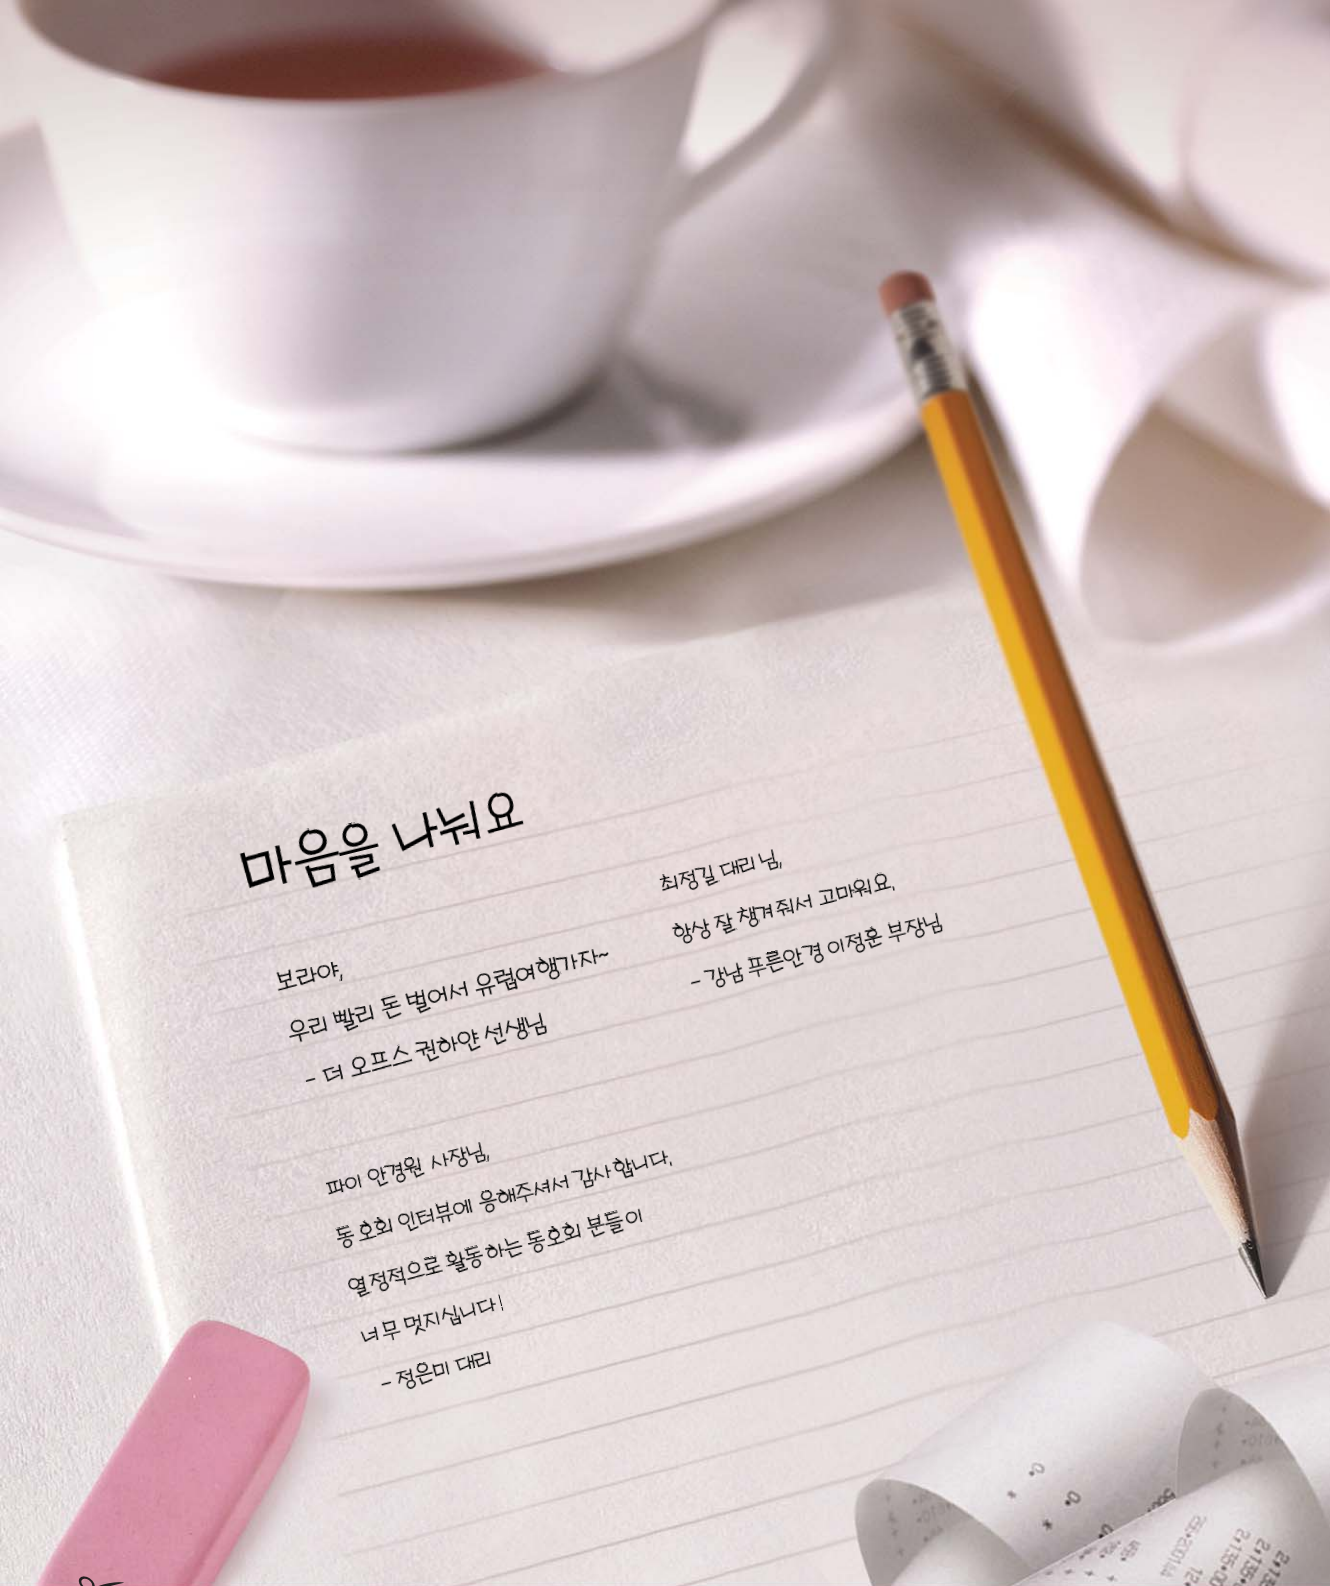 마음을 나눠요
보라야,
우리 빨리 돈 벌어서 유럽여행가자~
- 더 오프스 권하얀 선생님
최정길 대리 님,
항상 잘 챙겨 줘서 고마워요.
- 강남 푸른안경 이정훈 부장님
파이 안경원 사장님,
동호회 인터뷰에 응해주셔서 감사합니다.
열정적으로 활동하는 동호회 분들이
너무 멋지십니다!
- 정은미 대리